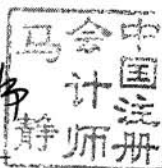 中国注册
会计师
马静